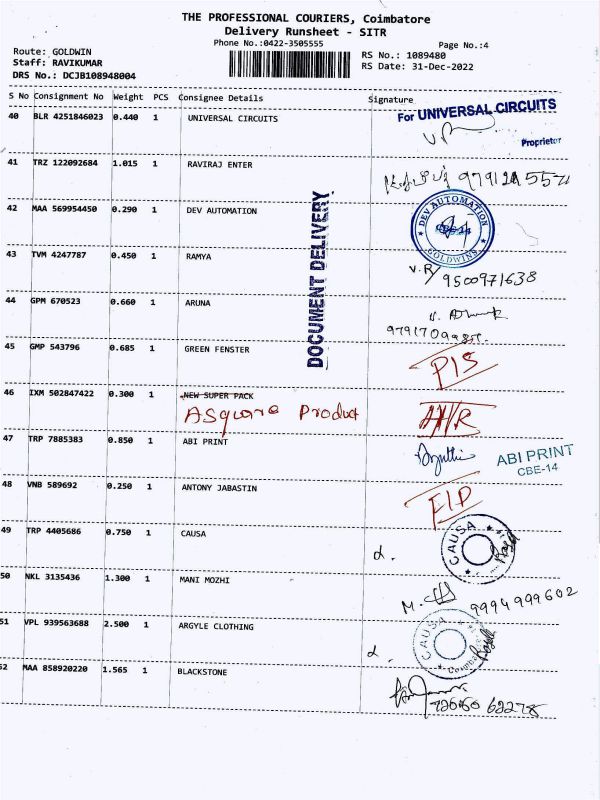 THE PROFESSIONAL COURIERS, Coimbatore
Delivery Runsheet - SITR
Phone No.:0422-3505555
Page No.:4
Route: GOLDWIN
Staff: RAVIKUMAR
DRS No.: DCJB108948004
RS No.: 1089480
RS Date: 31-Dec-2022
S No Consignment No Weight PCS Consignee Details Signature
40 BLR 4251846023 0.440 1 UNIVERSAL CIRCUITS
For UNIVERSAL CIRCUITS
Proprietor
41 TRZ 122092684 1.015 1 RAVIRAJ ENTER
42 MAA 569954450 0.290 1 DEV AUTOMATION
DEV AUTOMATION
GOLDWINS
DOCUMENT DELIVERY
43 TVM 4247787 0.450 1 RAMYA
V.R 9500971638
44 GPM 670523 0.660 1 ARUNA
45 GMP 543796 0.685 1 GREEN FENSTER
PIS
46 IXM 502847422 0.300 1 NEW SUPER PACK
ASquare Product
47 TRP 7885383 0.850 1 ABI PRINT
ABI PRINT
CBE-14
48 VNB 589692 0.250 1 ANTONY JABASTIN
49 TRP 4405686 0.750 1 CAUSA
CAUSA
50 NKL 3135436 1.300 1 MANI MOZHI
9994999602
51 VPL 939563688 2.500 1 ARGYLE CLOTHING
CAUSA
52 MAA 858920220 1.565 1 BLACKSTONE